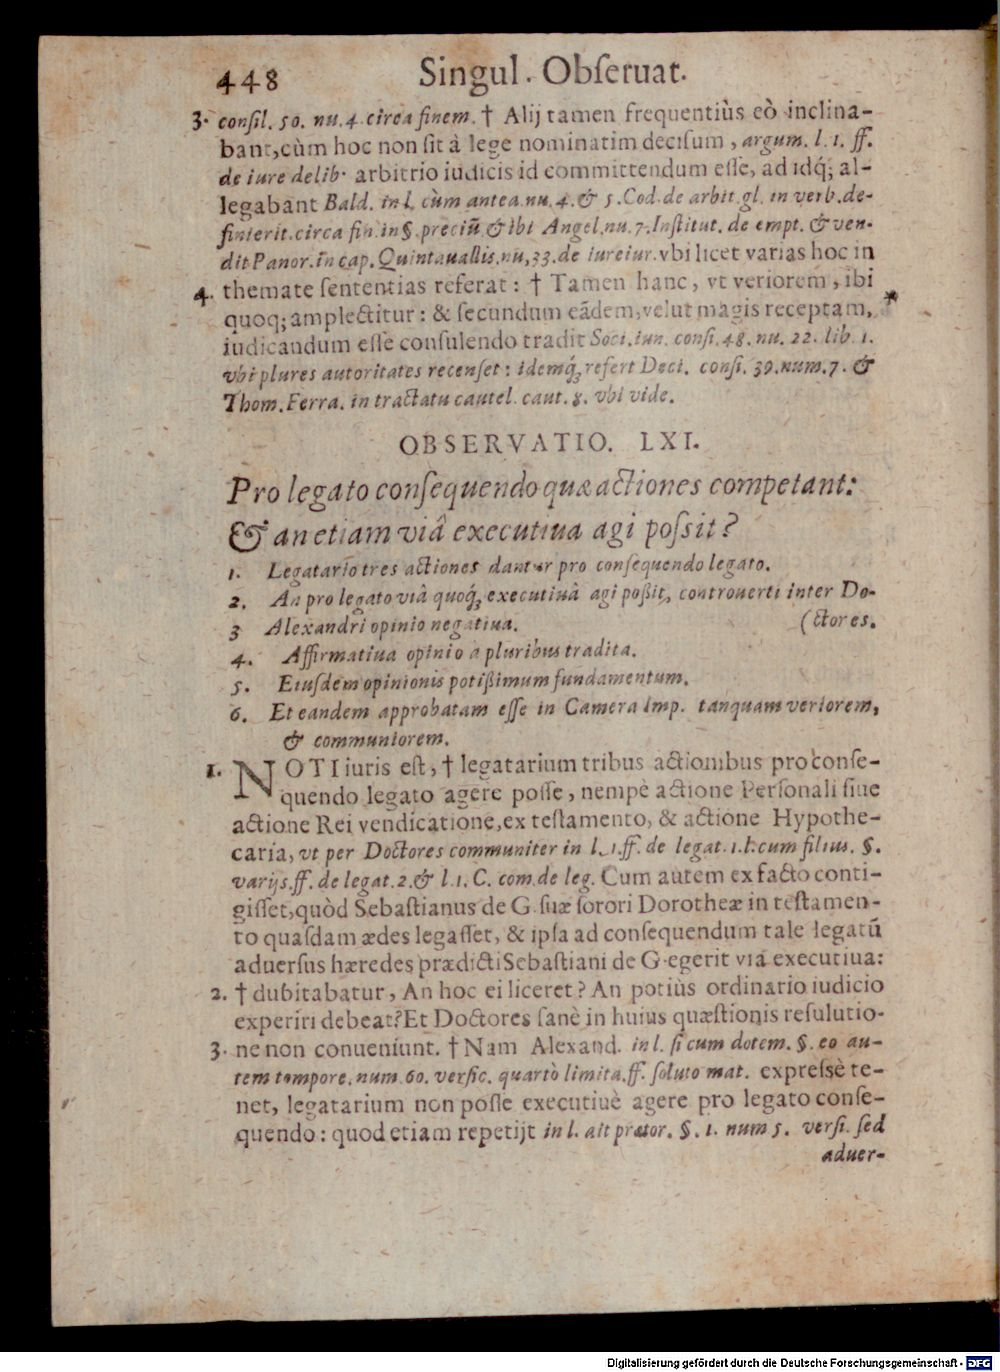 448 Singul. Obſeruat.
3. conſil. 50. nu. 4. circa finem. † Alij tamen frequentiùs eò inclina-
bant, cùm hoc non ſit à lege nominatim deciſum, argum. l. 1. ff.
de iure delib. arbitrio iudicis id committendum eſſe, ad idq́; al-
legabant Bald. in l. cùm antea nu. 4. & 5. Cod. de arbit. gl. in verb. de-
finierit. circa fin. in §. preciũ. & ibi Angel. nu. 7. Inſtitut. de empt. & ven-
dit. Panor. in cap. Quintauallis. nu, 33. de iureiur. vbi licet varias hoc in
4. themate ſententias referat: † Tamen hanc, vt veriorem, ibi
quoq; amplectitur: & ſecundum eãdem, velut magis receptam,
iudicandum eſſe conſulendo tradit Soci. iun. conſi. 48. nu. 22. lib. 1.
vbi plures autoritates recenſet: idemq́; refert Deci. conſi. 39. num. 7. &
Thom. Ferra. in tractatu cautel. caut. 8. vbi vide.
OBSERVATIO. LXI.
Pro legato conſequendo quæ actiones competant:
& an etiam viâ executiua agi poſsit?
1. Legatario tres actiones dantur pro conſequendo legato.
2. An pro legato viâ quoq́; executiuâ agi poßit, controuerti inter Do-
3 Alexandri opinio negatiua. (ctores.
4. Affirmatiua opinio a pluribus tradita.
5. Eiuſdem opinionis potißimum fundamentum.
6. Et eandem approbatam eſſe in Camera Imp. tanquam veriorem,
& communiorem.
1. NOTI iuris eſt, † legatarium tribus actionibus pro conſe-
quendo legato agere poſſe, nempè actione Perſonali ſiue
actione Rei vendicatione, ex teſtamento, & actione Hypothe-
caria, vt per Doctores communiter in l. 1. ff. de legat. 1. l. cum filius. §.
varijs. ff. de legat. 2. & l. 1. C. com. de leg. Cum autem ex facto conti-
giſſet, quòd Sebaſtianus de G. ſuæ ſorori Dorotheæ in teſtamen-
to quaſdam ædes legaſſet, & ipſa ad conſequendum tale legatũ
aduerſus hæredes prædicti Sebaſtiani de G. egerit via executiua:
2. † dubitabatur, An hoc ei liceret? An potiùs ordinario iudicio
experiri debeat? Et Doctores ſanè in huius quæſtionis reſulutio-
3. ne non conueniunt. † Nam Alexand. in l. ſi cum dotem. §. eo au-
tem tempore. num. 60. verſic. quartò limita. ff. ſoluto mat. expreſsè te-
net, legatarium non poſſe executiuè agere pro legato conſe-
quendo: quod etiam repetijt in l. ait prætor. §. 1. num 5. verſi. ſed
aduer-
Digitalisierung gefördert durch die Deutsche Forschungsgemeinschaft - DFG